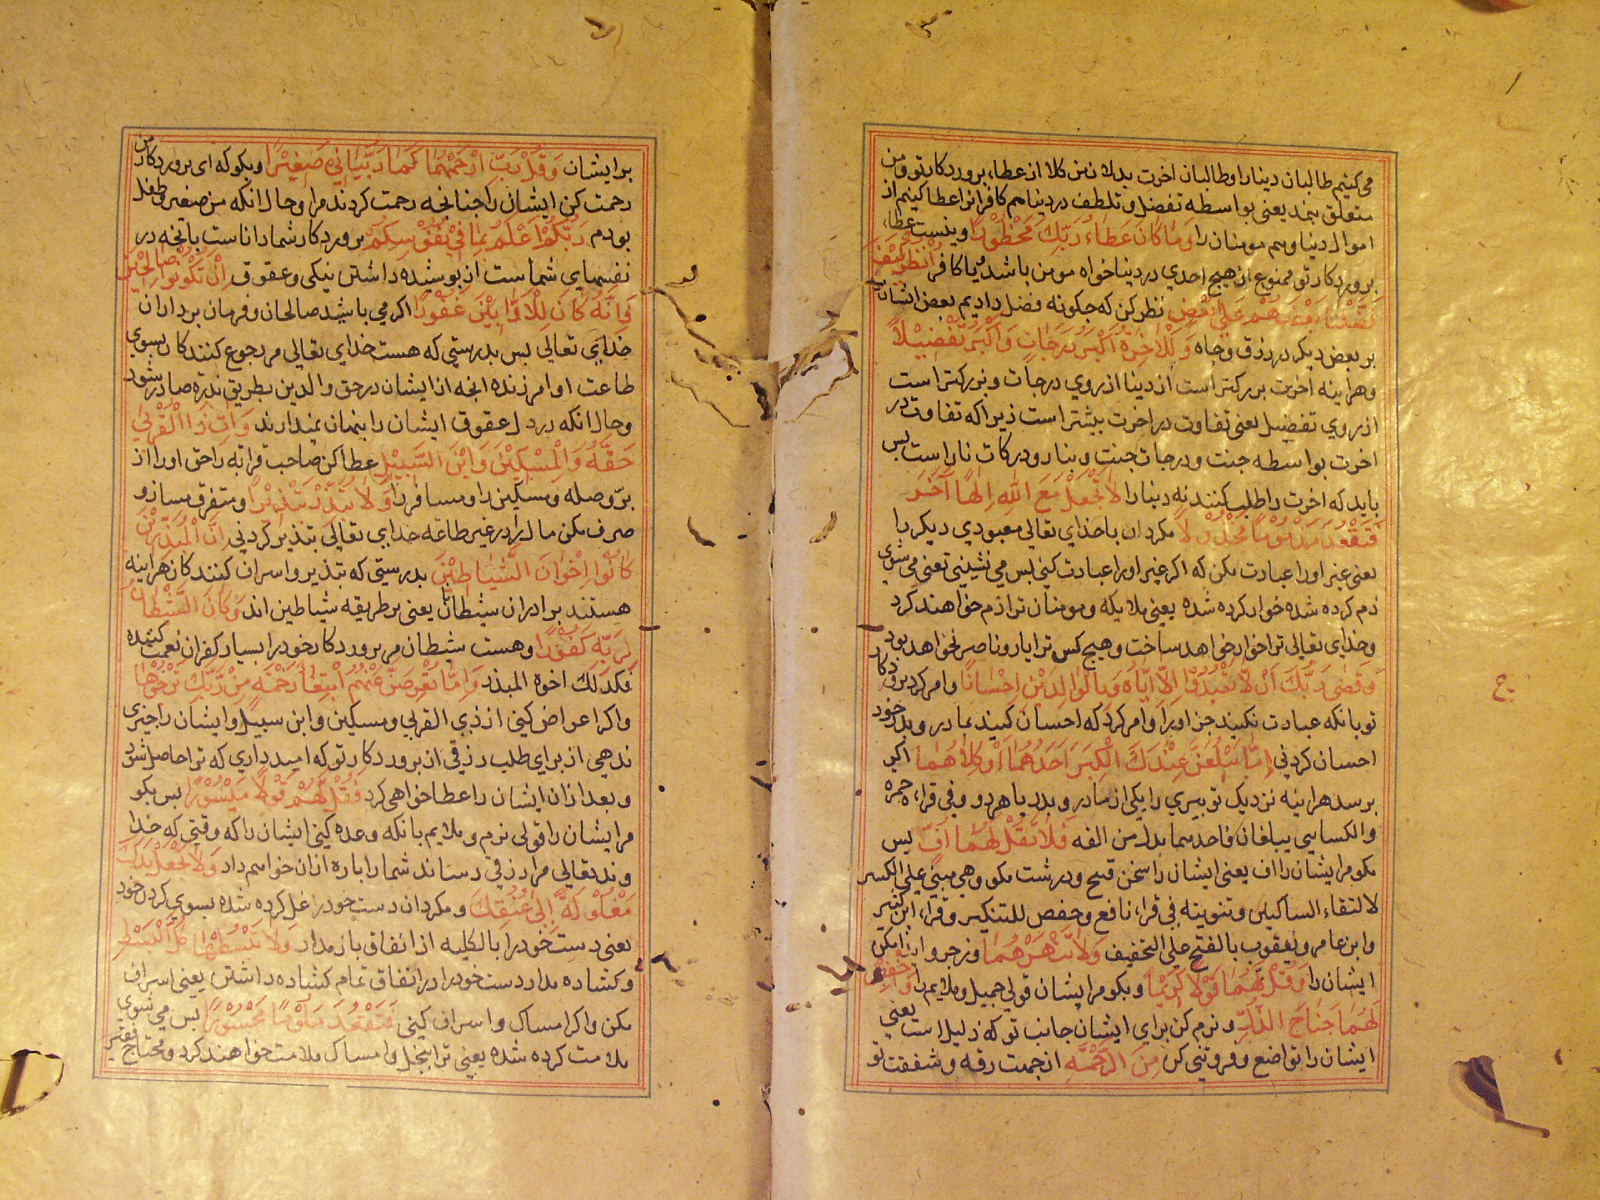 می کنیم طالبان دینا را و طالبان اخرت بدلا نمن کلا از عطاء پروردکار تو و من
متعلق بنمد یعنی بواسطه تفضل و تلطف در دینا هم کافرانرا عطا کنیم از
اموال دینا و هم مومنان را وَمَا كَانَ عَطَاءُ رَبِّكَ مَحْظُورًا و نیست عطاء
پروردکار تو ممنوع از هیچ احدي در دینا خواه مومن باشد و یا کافر اُنْظُرْ كَيْفَ
فَضَّلْنَا بَعْضَهُمْ عَلَى بَعْضٍ نظر کن که چکونه فضل دادیم بعض ایشان
بر بعض دیکر در رزق و جاه وَلَلْآخِرَةُ أَكْبَرُ دَرَجَاتٍ وَأَكْبَرُ تَفْضِيلًا
و هراینه اخرت بزرکتر است از دینا از روي درجات و بزرکتر است
از روي تفضیل یعنی تفاوت در اخرت بیشتر است زیرا که تفاوت در
اخرت بواسطه جنت و درجات جنت و بنار و درکات نار است پس
باید که اخرت را طلب کنند نه دینا را لَا تَجْعَلْ مَعَ اللهِ إِلَهًا آخَرَ
فَتَقْعُدَ مَذْمُومًا مَخْذُولًا مکردان با خذاي تعالی معبودي دیکر را
یعنی غیر او را عبادت مکن که اکر غیر او را عبادت کنی پس می نشینی یعنی می شوي
ذم کرده شده خوار کرده شده یعنی ملایکه و مومنان ترا ذم خواهند کرد
و خداي تعالی ترا خوار خواهد ساخت و هیچ کس ترا یار و ناصر نخواهد بود
وَقَضَى رَبُّكَ أَنْ لَا تَعْبُدُوا إِلَّا إِيَّاهُ وَبِالْوَالِدَيْنِ إِحْسَانًا و امر کرد پروردکار
تو بانکه عبادت نکنید جز او را و امر کرد که احسان کنید بمادر و پدر خود
احسان کردنی إِمَّا يَبْلُغَنَّ عِنْدَكَ الْكِبَرَ أَحَدُهُمَا أَوْ كِلَاهُمَا اکر
برسد هراینه نزدیک تو بپیري را یکی از مادر و پدر یا هر دو و فی قراء حمزه
والکسایی یبلغان فاحدهما بدل من الفه فَلَا تَقُلْ لَهُمَا أُفٍّ پس
مکو مر ایشان را اف یعنی ایشان را سخن قبیح و درشت مکو و هی مبنی علی الکسر
لالتقاء الساکنین و تنوینه فی قراء نافع و حفص للتنکیر و قراء ابن کثیر
وابن عامر و یعقوب بالفتح علی التخفیف وَلَا تَنْهَرْهُمَا و زجر و ایذا مکن
ایشان را وَقُلْ لَهُمَا قَوْلًا كَرِيمًا و بکو مر ایشان قولی جمیل و ملایم را وَاخْفِضْ
لَهُمَا جَنَاحَ الذُّلِّ و نرم کن براي ایشان جانب تو که ذلیل است یعنی
ایشان را تواضع و فروتنی کن مِنَ الرَّحْمَةِ از جهت رقه و شفقت تو
بر ایشان وَقُلْ رَبِّ ارْحَمْهُمَا كَمَا رَبَّيَانِي صَغِيرًا و بکو که ای پروردکار من
رحمت کن ایشان را چنانچه رحمت کردند مرا و حال انکه من صغیر و طفل
بودم رَبُّكُمْ أَعْلَمُ بِمَا فِي نُفُوسِكُمْ پروردکار شما داناست بانچه در
نفسهاي شماست از پوشیده داشتن نیکی و عقوق إِنْ تَكُونُوا صَالِحِينَ
فَإِنَّهُ كَانَ لِلْأَوَّابِينَ غَفُورًا اکر می باشید صالحان و فرمان برداران
خذاي تعالی پس بدرستی که هست خذاي تعالی مر رجوع کنندکان بسوي
طاعت او امرزنده انچه از ایشان در حق والدین بطریق ندره صادر شود
و حال انکه در دل عقوق ایشان را پنهان نپندارند وَآتِ ذَا الْقُرْبَى
حَقَّهُ وَالْمِسْكِينَ وَابْنَ السَّبِيلِ عطا کن صاحب قرابه را حق او را از
بر و صله و مسکین را و مسافر را وَلَا تُبَذِّرْ تَبْذِيرًا و متفرق مساز و
صرف مکن مال را در غیر طاعه خداي تعالی تبذیر کردنی إِنَّ الْمُبَذِّرِينَ
كَانُوا إِخْوَانَ الشَّيَاطِينِ بدرستی که تبذیر و اسراف کنندکان هراینه
هستند برادران شیطانان یعنی بر طریقه شیاطین اند وَكَانَ الشَّيْطَانُ
لِرَبِّهِ كَفُورًا و هست شیطان مر پروردکار خود را بسیار کفران نعمت کننده
فکذلک اخوه المبذر وَإِمَّا تُعْرِضَنَّ عَنْهُمُ ابْتِغَاءَ رَحْمَةٍ مِنْ رَبِّكَ تَرْجُوهَا
و اکر اعراض کنی از ذي القربی و مسکین و ابن سبیل و ایشان را چیزي
ندهی از براي طلب رزقی از پروردکار تو که امید داري که ترا حاصل شود
و بعد ازان ایشان را عطا خواهی کرد فَقُلْ لَهُمْ قَوْلًا مَيْسُورًا پس بکو
مر ایشان را قولی نرم و ملایم بانکه وعده کنی ایشان را که وقتی که خدا
وند تعالی مرا رزقی رساند شما را باره ازان خواهم داد وَلَا تَجْعَلْ يَدَكَ
مَغْلُولَةً إِلَى عُنُقِكَ و مکردان دست خود را غل کرده شده بسوي کردن خود
یعنی دست خود را بالکلیه از انفاق باز مدار وَلَا تَبْسُطْهَا كُلَّ الْبَسْطِ
و کشاده مدار دست خود را در انفاق تمام کشاده داشتن یعنی اسراف
مکن و اکر امساک و اسراف کنی فَتَقْعُدَ مَلُومًا مَحْسُورًا پس می شوي
ملامت کرده شده یعنی ترا ببخل و امساک ملامت خواهند کرد و محتاج فقیر